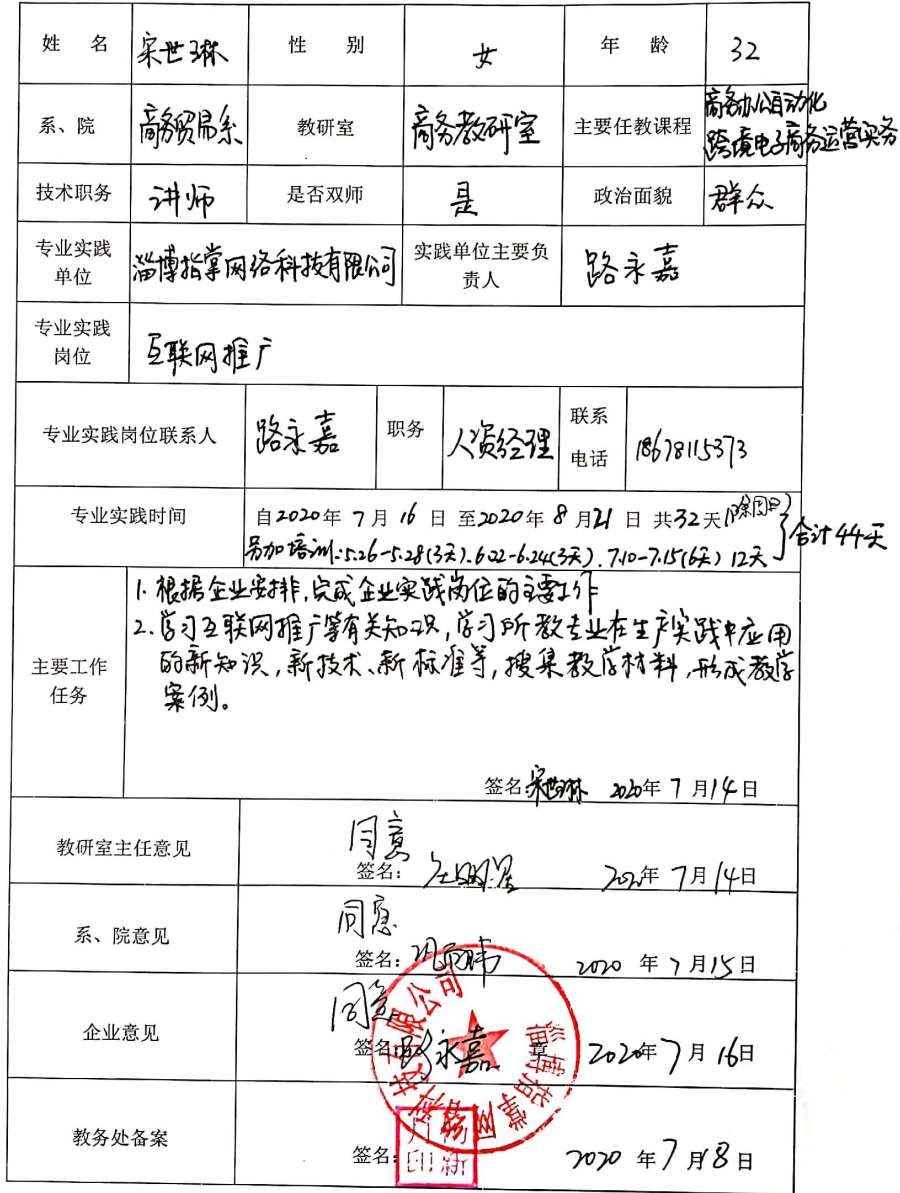 姓 名 宋世琳 性 别 女 年 龄 32
系、院 商务贸易系 教研室 商务教研室 主要任教课程 商务办公自动化
跨境电子商务运营实务
技术职务 讲师 是否双师 是 政治面貌 群众
专业实践单位 淄博指掌网络科技有限公司 实践单位主要负责人 路永嘉
专业实践岗位 互联网推广
专业实践岗位联系人 路永嘉 职务 人资经理 联系电话 18678115373
专业实践时间 自2020年 7月 16日 至2020年 8月21日 共32天(除周日) 合计44天
另加培训:5.26-5.28(3天).6.22-6.24(3天).7.10-7.15(6天) 12天
主要工作任务
1. 根据企业安排,完成企业实践岗位的主要工作
2. 学习互联网推广等有关知识,学习所教专业在生产实践中应用
的新知识,新技术、新标准等,搜集教学材料,形成教学
案例。
签名 宋世琳 2020年 7月14日
教研室主任意见 同意
签名: 2020年 7月14日
系、院意见 同意
签名: 2020年 7月15日
企业意见 同意
签名 路永嘉 章 2020年 7月 16日
淄博指掌网络科技有限公司
教务处备案
签名: 2020年 7月18日